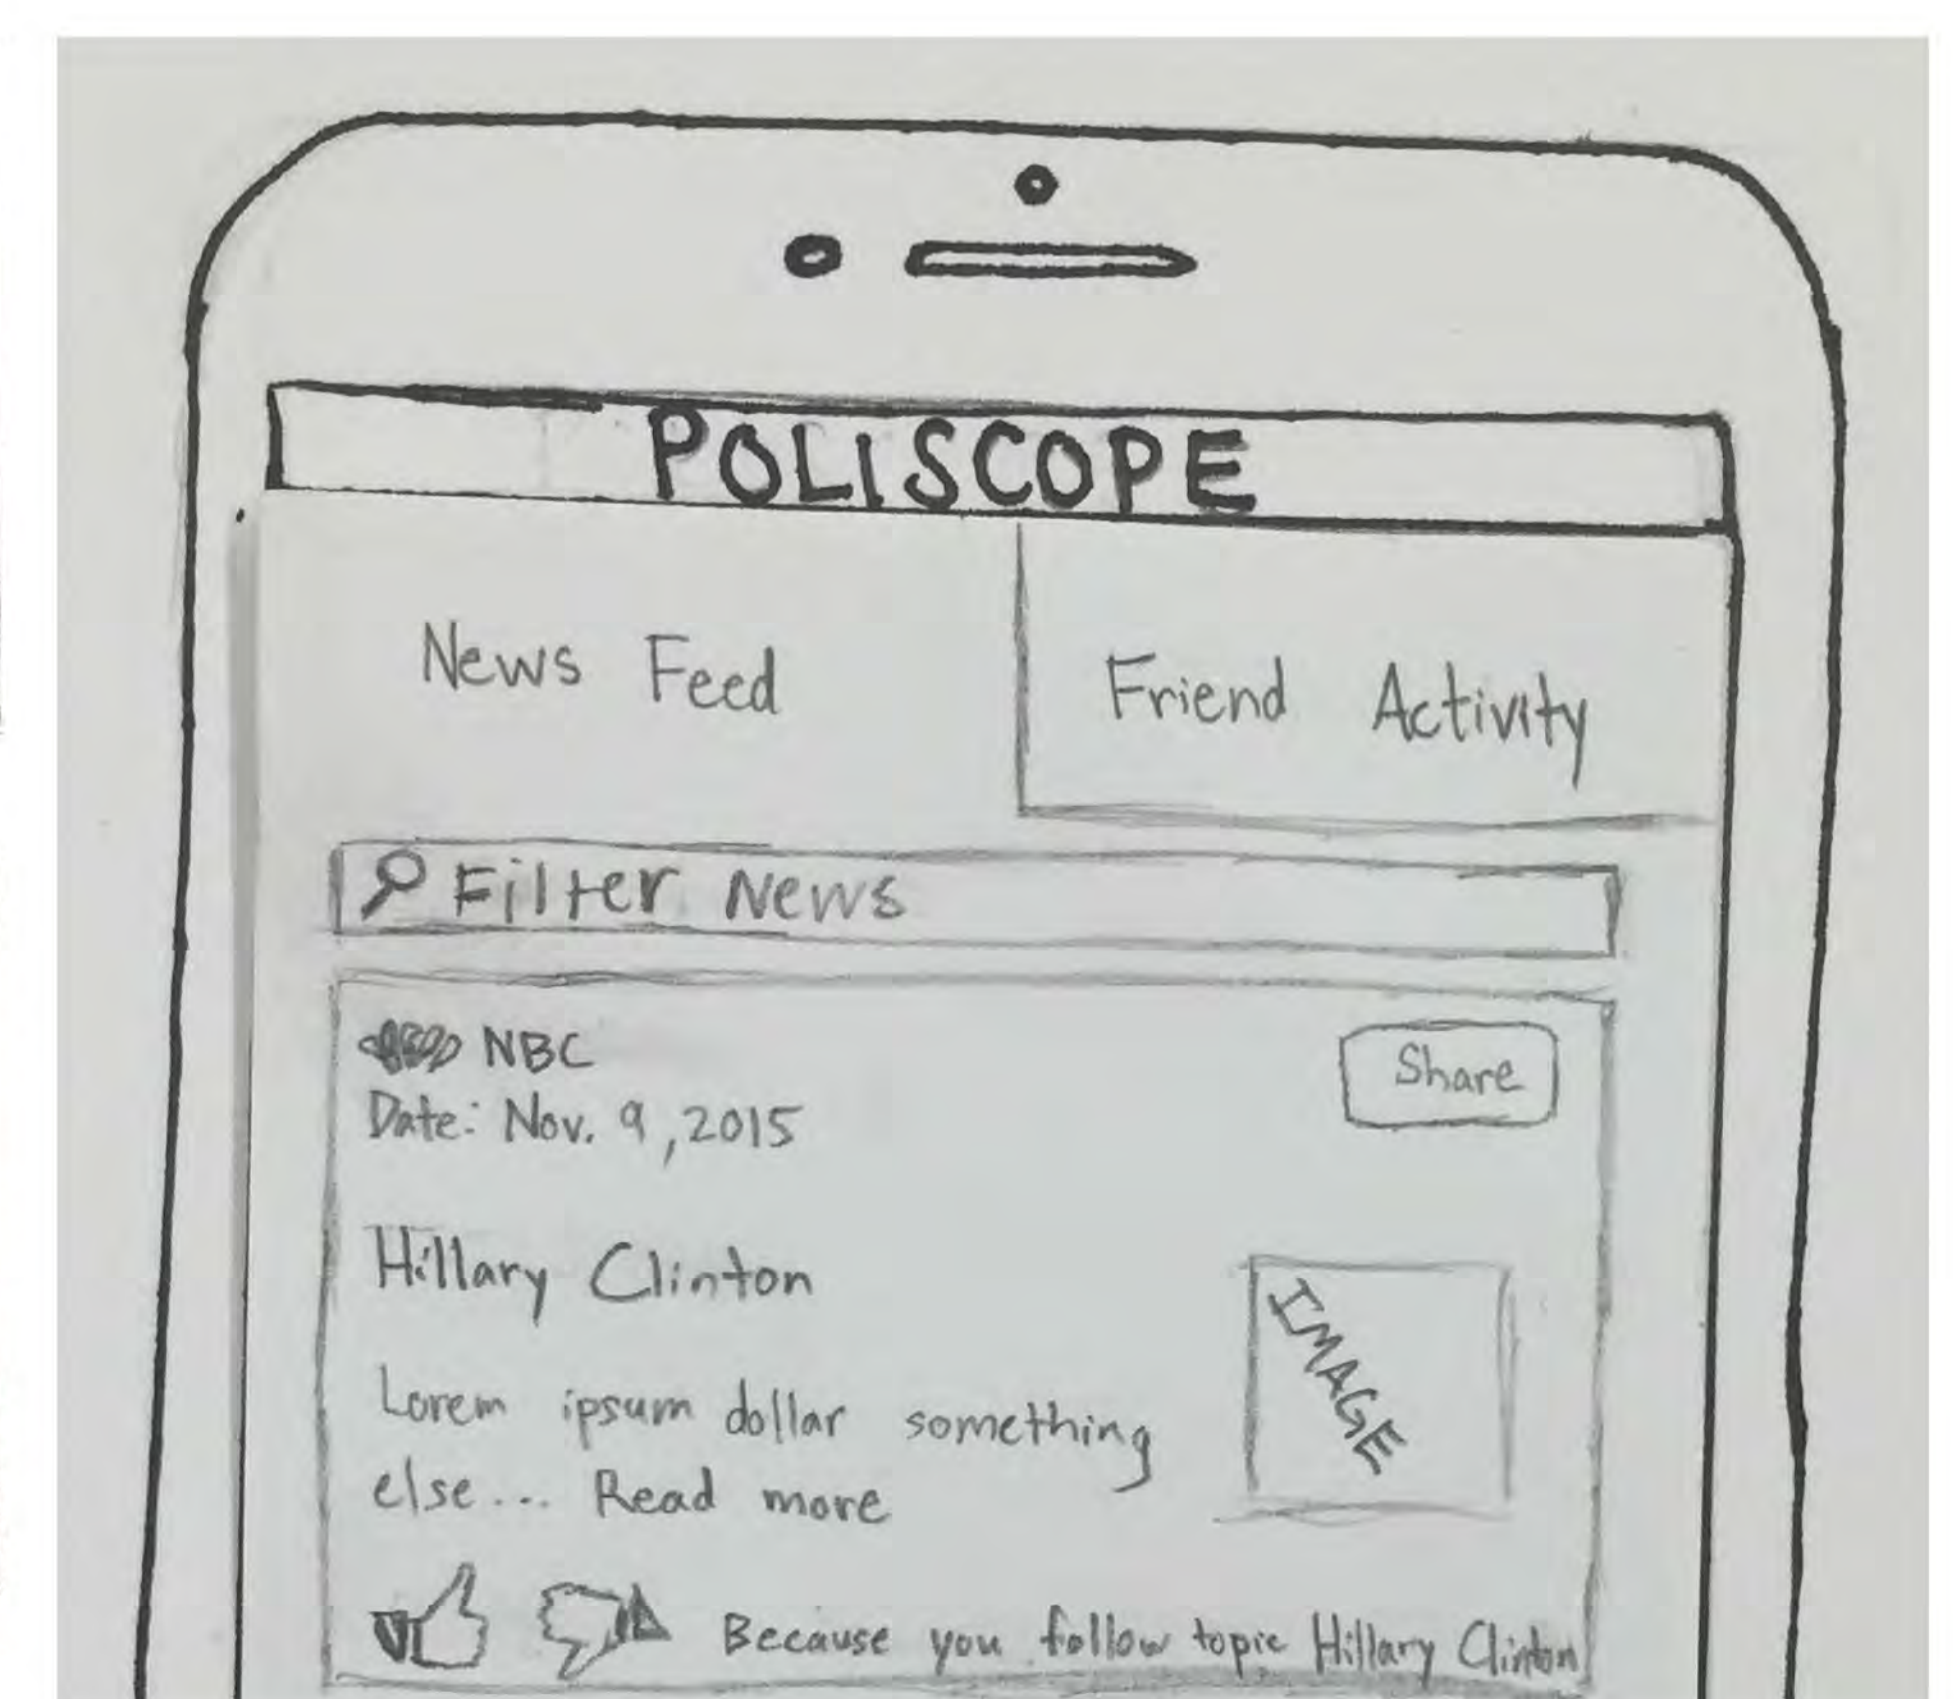 POLISCOPE
News Feed
Friend Activity
Filter News
NBC
Share
Date: Nov. 9, 2015
Hillary Clinton
IMAGE
Lorem ipsum dollar something
else... Read more
Because you follow topic Hillary Clinton